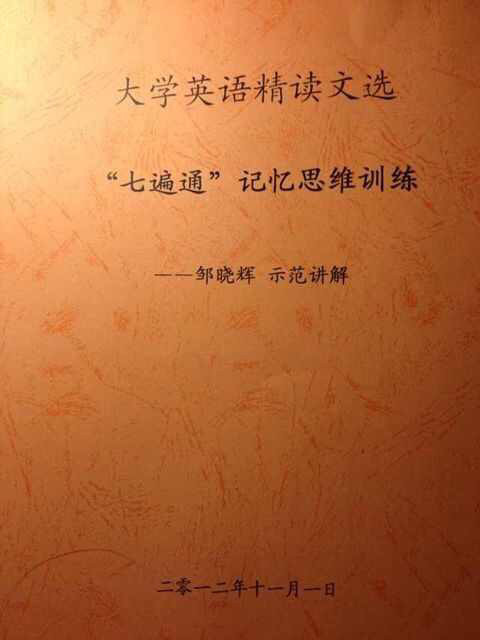 大学英语精读文选
“七遍通”记忆思维训练
——邹晓辉 示范讲解
二零一二年十一月一日